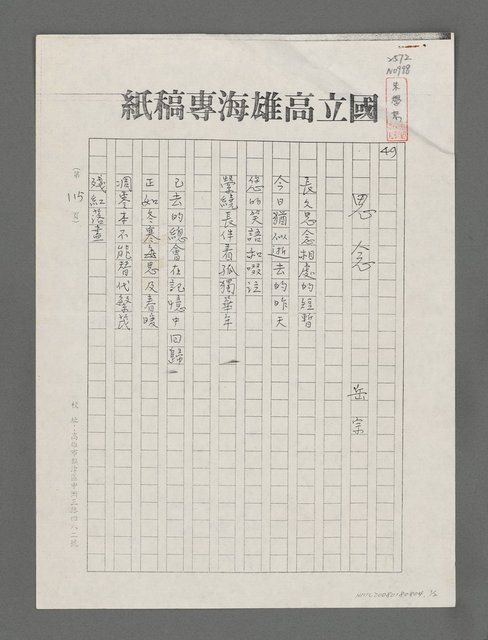 2572
No998
國立高雄海專稿紙
49
思念
岳宗
長久思念相處的短暫
今日猶似逝去的昨天
您的笑語和啜泣
縈繞長伴着孤獨華年
已去的總會在記憶中回歸
正如冬寒每思及春暖
凋零並不能替代繁茂
殘紅落盡
(第 115 頁)
校址：高雄市旗津區中洲三路四八二號
NMTL20080180804, 1/2